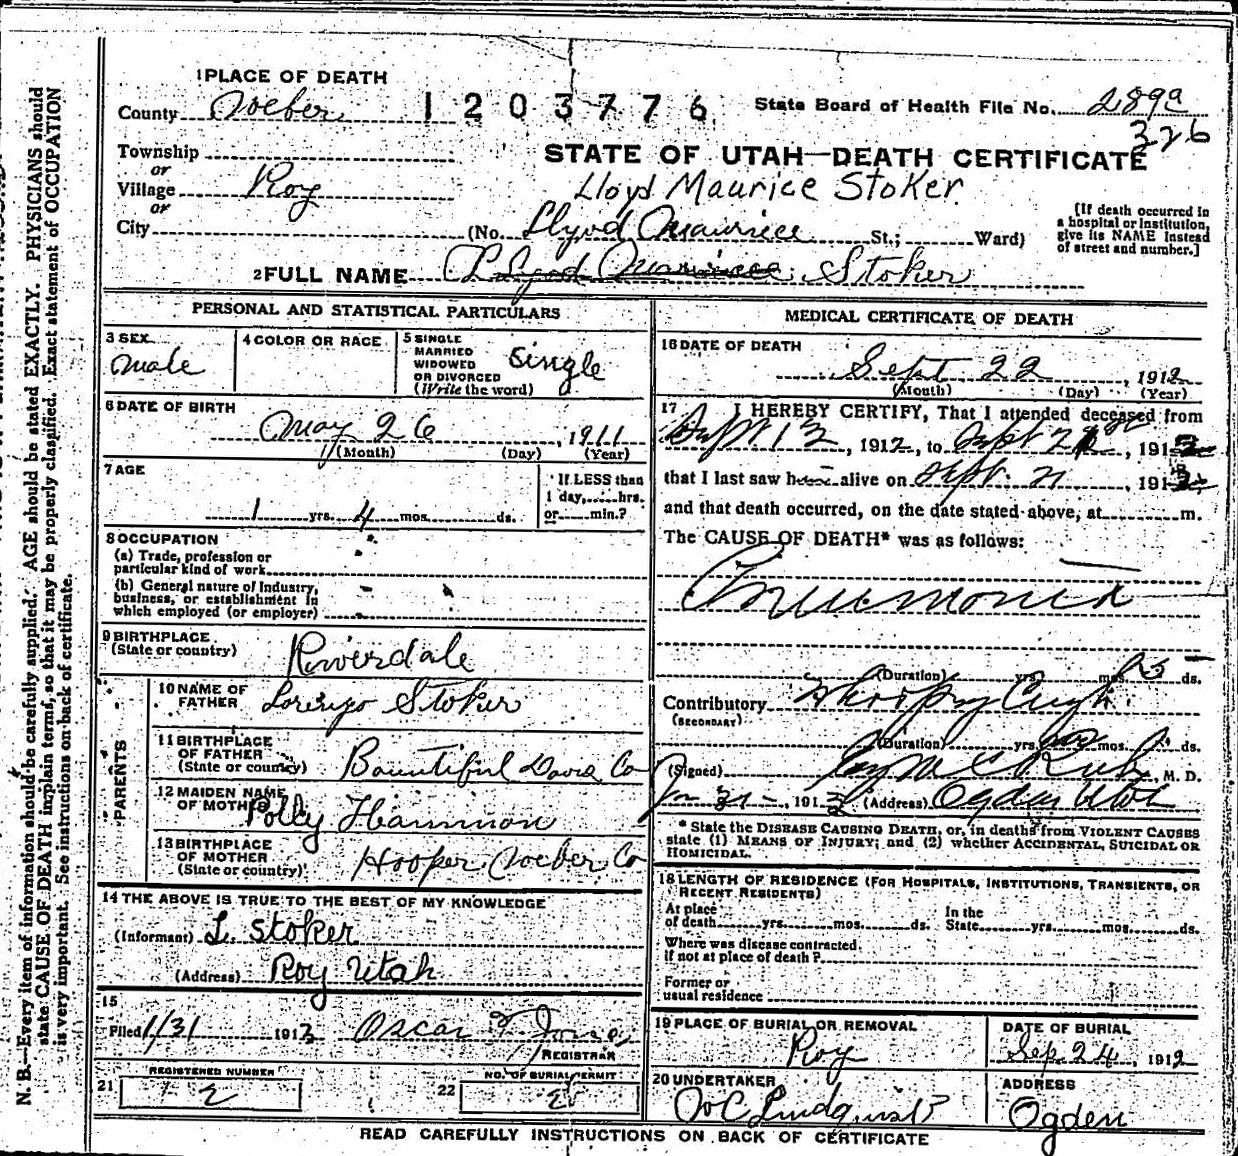 1 PLACE OF DEATH
County Weber 1203776 State Board of Health File No. 2899
326
Township
or
STATE OF UTAH—DEATH CERTIFICATE
Village Roy
Lloyd Maurice Stoker.
or
City (No. Llyod Maurice St.; Ward)
[If death occurred in
a hospital or institution,
give its NAME instead
of street and number.]
2 FULL NAME Llyod Maurice Stoker
PERSONAL AND STATISTICAL PARTICULARS
3 SEX
Male
4 COLOR OR RACE
5 SINGLE
MARRIED
WIDOWED
OR DIVORCED
(Write the word)
Single
6 DATE OF BIRTH
May 26, 1911
(Month) (Day) (Year)
7 AGE
1 yrs. 4 mos. ds.
If LESS than
1 day, hrs.
or min.?
8 OCCUPATION
(a) Trade, profession or
particular kind of work
(b) General nature of Industry,
business, or establishment in
which employed (or employer)
9 BIRTHPLACE
(State or country) Riverdale
PARENTS
10 NAME OF
FATHER Lorenzo Stoker
11 BIRTHPLACE
OF FATHER
(State or country) Bountiful Davis Co
12 MAIDEN NAME
OF MOTHER Polly Hammon
13 BIRTHPLACE
OF MOTHER
(State or country) Hooper Weber Co
14 THE ABOVE IS TRUE TO THE BEST OF MY KNOWLEDGE
(Informant) L. Stoker
(Address) Roy Utah
15
Filed 1/31 1913 Oscar
REGISTRAR
REGISTERED NUMBER
21 2
NO. OF BURIAL PERMIT
22 2
MEDICAL CERTIFICATE OF DEATH
16 DATE OF DEATH
Sept 22, 1912
(Month) (Day) (Year)
17 I HEREBY CERTIFY, That I attended deceased from
Sept 12, 1912, to Sept, 191
that I last saw h alive on Sept. 21, 191
and that death occurred, on the date stated above, at m.
The CAUSE OF DEATH* was as follows:
Pneumonia
(Duration) yrs. mos. ds.
Contributory Whooping Cough
(SECONDARY)
(Duration) yrs. mos. ds.
(Signed), M. D.
Jan 31, 1913 (Address) Ogden Utah
* State the DISEASE CAUSING DEATH, or, in deaths from VIOLENT CAUSES
state (1) MEANS OF INJURY; and (2) whether ACCIDENTAL, SUICIDAL OR
HOMICIDAL.
18 LENGTH OF RESIDENCE (FOR HOSPITALS, INSTITUTIONS, TRANSIENTS, OR
RECENT RESIDENTS)
At place
of death yrs. mos. ds.
In the
State yrs. mos. ds.
Where was disease contracted
if not at place of death?
Former or
usual residence
19 PLACE OF BURIAL OR REMOVAL
Roy
DATE OF BURIAL
Sep 24, 1912
20 UNDERTAKER
W C Lindquist
ADDRESS
Ogden
READ CAREFULLY INSTRUCTIONS ON BACK OF CERTIFICATE
N. B.—Every item of information should be carefully supplied. AGE should be stated EXACTLY. PHYSICIANS should
state CAUSE OF DEATH in plain terms, so that it may be properly classified. Exact statement of OCCUPATION
is very important. See instructions on back of certificate.